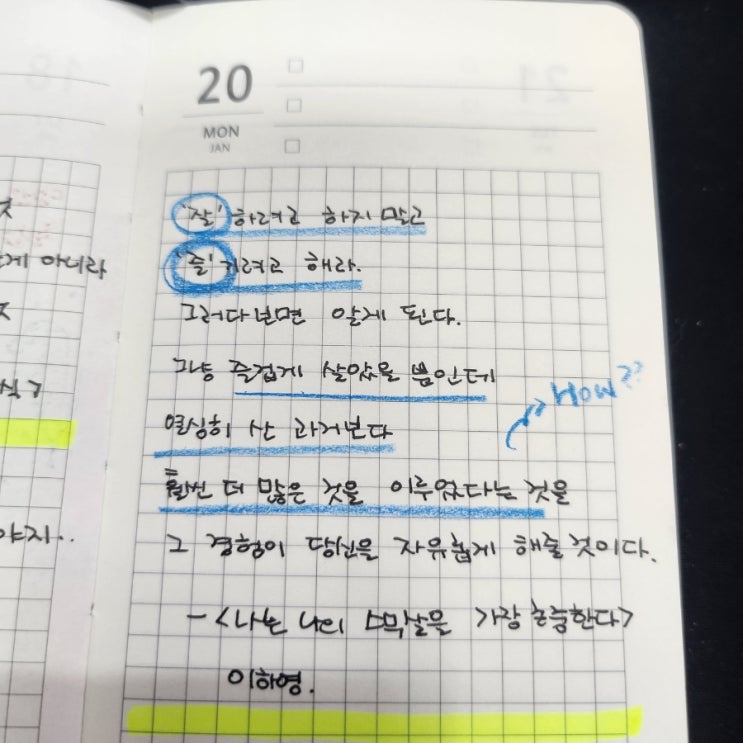 20
MON
JAN
게 아니라
야지..
'잘'하려고 하지 말고
'즐'기려고 해라.
그러다보면 알게 된다.
그냥 즐겁게 살았을 뿐인데
How??
열심히 산 과거보다
훨씬 더 많은 것을 이루었다는 것을
그 경험이 당신을 자유롭게 해줄 것이다.
- <나는 나의 스무살을 가장 존중한다>
이하영.